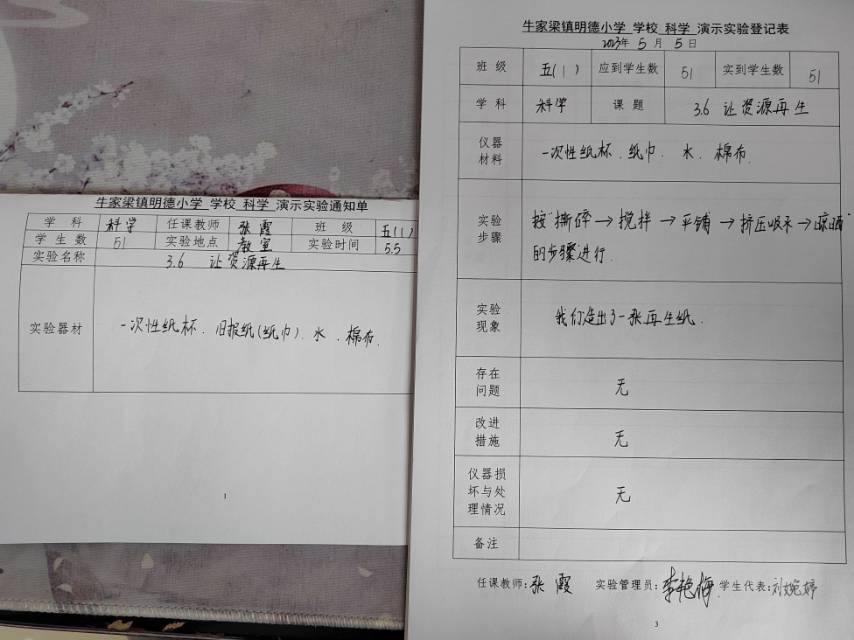 牛家梁镇明德小学 学校 科学 演示实验通知单
学 科 科学 任课教师 张霞 班 级 五(1)
学 生 数 51 实验地点 教室 实验时间 5.5
实验名称 3.6 让资源再生
实验器材 一次性纸杯、旧报纸(纸巾)、水、棉布.
1
牛家梁镇明德小学 学校 科学 演示实验登记表
2023年 5 月 5 日
班 级 五(1) 应到学生数 51 实到学生数 51
学 科 科学 课 题 3.6 让资源再生
仪器
材料 一次性纸杯、纸巾、水、棉布.
实验
步骤 按"撕碎→搅拌→平铺→挤压吸水→晾晒"
的步骤进行.
实验
现象 我们造出了一张再生纸.
存在
问题 无
改进
措施 无
仪器损
坏与处
理情况 无
备注
任课教师:张霞 实验管理员:李艳梅 学生代表:刘婉婷
3